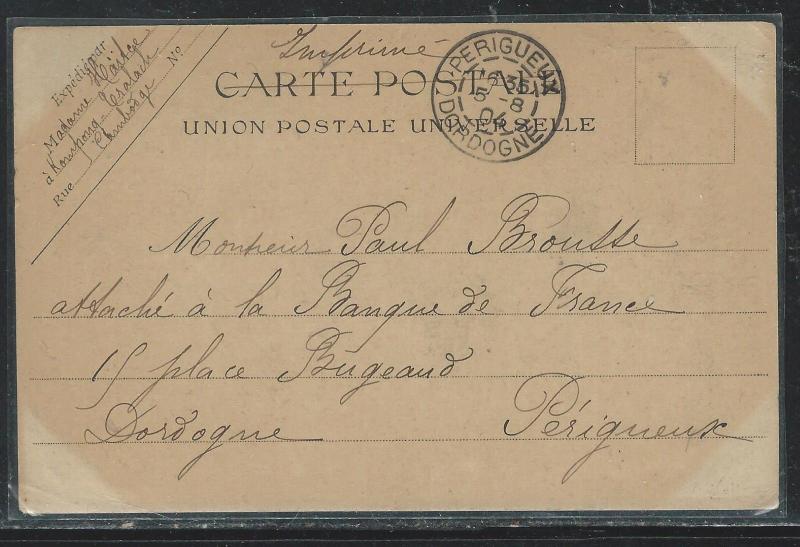 Expédié par
Madame
à Kompong-Cralach
Cambodge
Rue N°
Imprimé
CARTE POSTALE
UNION POSTALE UNIVERSELLE
PERIGUEUX
5 -8
04
DORDOGNE
Monsieur Paul Brousse
attaché à la Banque de France
15 place Bugeaud
Dordogne Périgueux